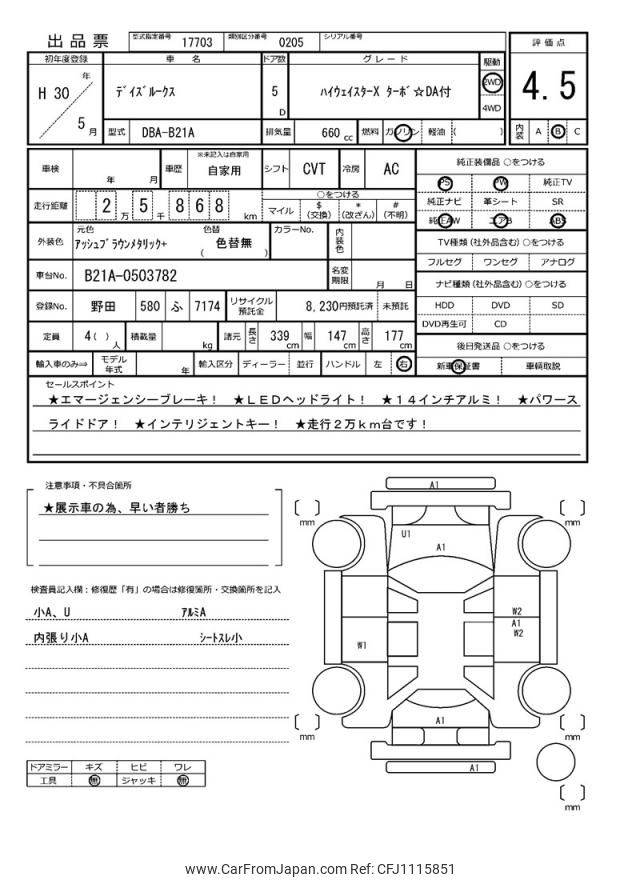 出品票 型式指定番号 17703 類別区分番号 0205 シリアル番号
初年度登録 車名 ドア数 グレード 駆動 評価点
H 30 年 5 月 デイズルークス 5 D ハイウェイスターX ターボ☆DA付 2WD 4WD 4.5
型式 DBA-B21A 排気量 660 cc 燃料 ガソリン 軽油 ( ) 内装 A B C
車検 年 月 車歴 ※未記入は自家用 自家用 シフト CVT 冷房 AC 純正装備品 ○をつける
PS PW 純正TV
走行距離 2 万 5 千 8 6 8 km ○をつける 純正ナビ 革シート SR
マイル $(交換) *(改ざん) #(不明) 純正AW エアB ABS
外装色 元色 アッシュブラウンメタリック+ 色替 ( 色替無 ) カラーNo. 内装色 TV種類 (社外品含む) ○をつける
フルセグ ワンセグ アナログ
車台No. B21A-0503782 名変期限 月 日 ナビ種類 (社外品含む) ○をつける
登録No. 野田 580 ふ 7174 リサイクル預託金 8,230円預託済 未預託 HDD DVD SD
DVD再生可 CD
定員 4( ) 人 積載量 kg 諸元 長さ 339 cm 幅 147 cm 高さ 177 cm 後日発送品 ○をつける
輸入車のみ⇒ モデル年式 年 輸入区分 ディーラー 並行 ハンドル 左 右 新車保証書 車輌取説
セールスポイント
★エマージェンシーブレーキ! ★LEDヘッドライト! ★14インチアルミ! ★パワース
ライドドア! ★インテリジェントキー! ★走行2万km台です!
注意事項・不具合箇所
★展示車の為、早い者勝ち
検査員記入欄:修復歴「有」の場合は修復箇所・交換箇所を記入
小A、U アルミA
内張り小A シートスレ小
ドアミラー キズ ヒビ ワレ
工具 無 ジャッキ 無
A1
mm mm
U1
A1
W2
A1
W2
W1
A1
mm mm
A1
mm
www.CarFromJapan.com Ref: CFJ1115851